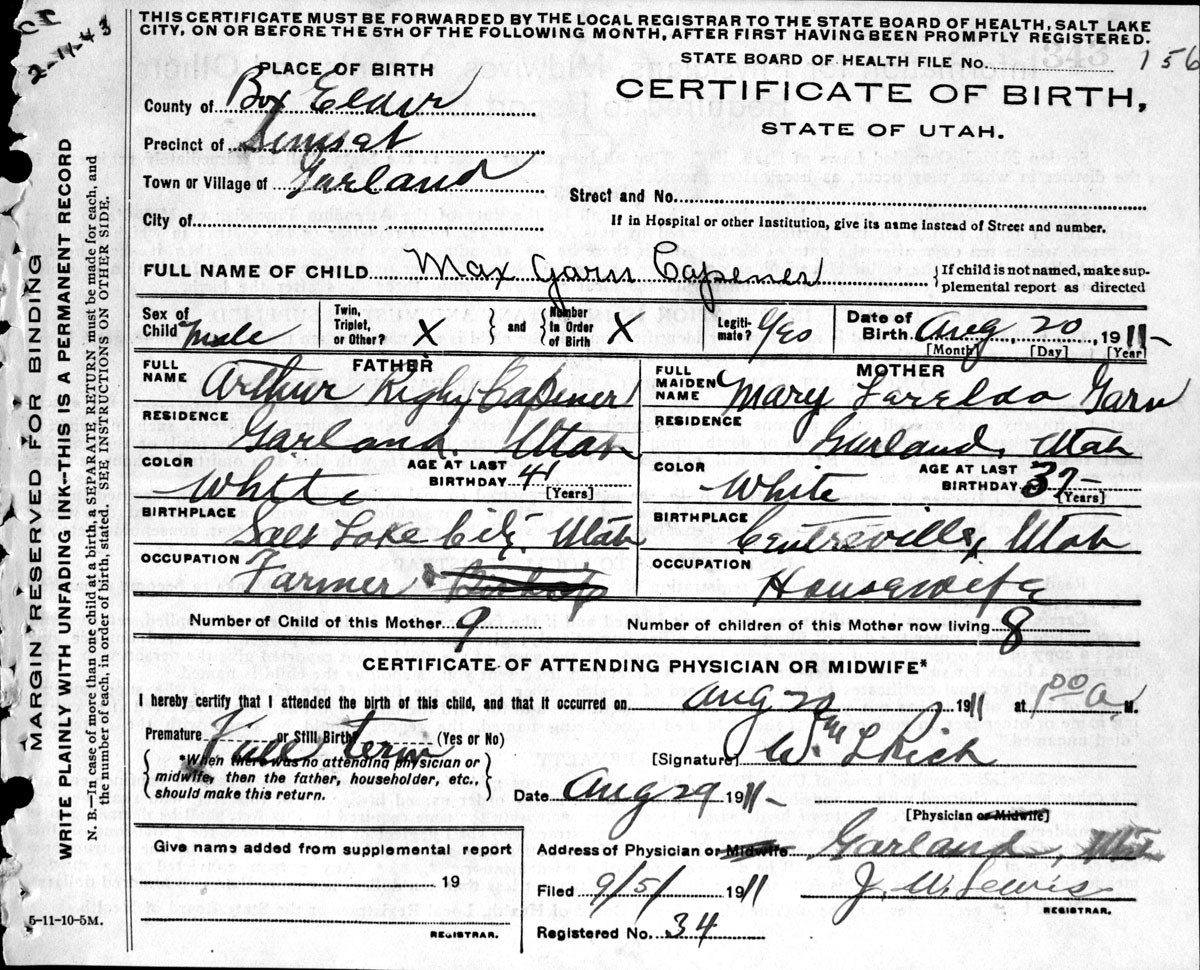 C I
2-11-43
THIS CERTIFICATE MUST BE FORWARDED BY THE LOCAL REGISTRAR TO THE STATE BOARD OF HEALTH, SALT LAKE
CITY, ON OR BEFORE THE 5TH OF THE FOLLOWING MONTH, AFTER FIRST HAVING BEEN PROMPTLY REGISTERED.
STATE BOARD OF HEALTH FILE No. 156
CERTIFICATE OF BIRTH,
STATE OF UTAH.
PLACE OF BIRTH
County of Box Elder
Precinct of
Town or Village of Garland
Street and No.
City of
If in Hospital or other Institution, give its name instead of Street and number.
FULL NAME OF CHILD Max Garn Capener
{ If child is not named, make sup-
plemental report as directed
Sex of Child Male
Twin, Triplet, or Other? X { and } Number In Order of Birth X
Legiti-mate? Yes
Date of Birth Aug 20, 1911-
[Month] [Day] [Year]
FATHER
FULL NAME Arthur Rigby Capener
RESIDENCE Garland, Utah
COLOR White
AGE AT LAST BIRTHDAY 41 [Years]
BIRTHPLACE Salt Lake City, Utah
OCCUPATION Farmer & Bishop
MOTHER
FULL MAIDEN NAME Mary Garn
RESIDENCE Garland, Utah
COLOR White
AGE AT LAST BIRTHDAY 37- [Years]
BIRTHPLACE Centreville, Utah
OCCUPATION Housewife
Number of Child of this Mother 9
Number of children of this Mother now living 8
CERTIFICATE OF ATTENDING PHYSICIAN OR MIDWIFE*
I hereby certify that I attended the birth of this child, and that it occurred on Aug 20, 1911 at 1 00 a M.
Premature or Still Birth? (Yes or No)
Full term
{ *When there was no attending physician or
midwife, then the father, householder, etc.,
should make this return. }
[Signature] Wm L Rich
Date Aug 29 1911-
[Physician or Midwife]
Give name added from supplemental report
19
REGISTRAR.
Address of Physician or Midwife Garland, Utah
Filed 9/5/ 1911 J. W. Lewis
REGISTRAR.
Registered No. 34
5-11-10-5M.
MARGIN RESERVED FOR BINDING
WRITE PLAINLY WITH UNFADING INK—THIS IS A PERMANENT RECORD
N. B.—In case of more than one child at a birth, a SEPARATE RETURN must be made for each, and
the number of each, in order of birth, stated. SEE INSTRUCTIONS ON OTHER SIDE.